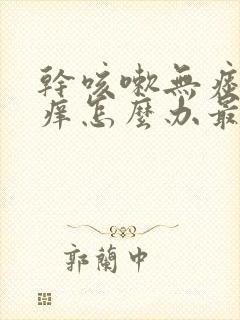 幹咳嗽無
痒怎麼办最
郭蘭中